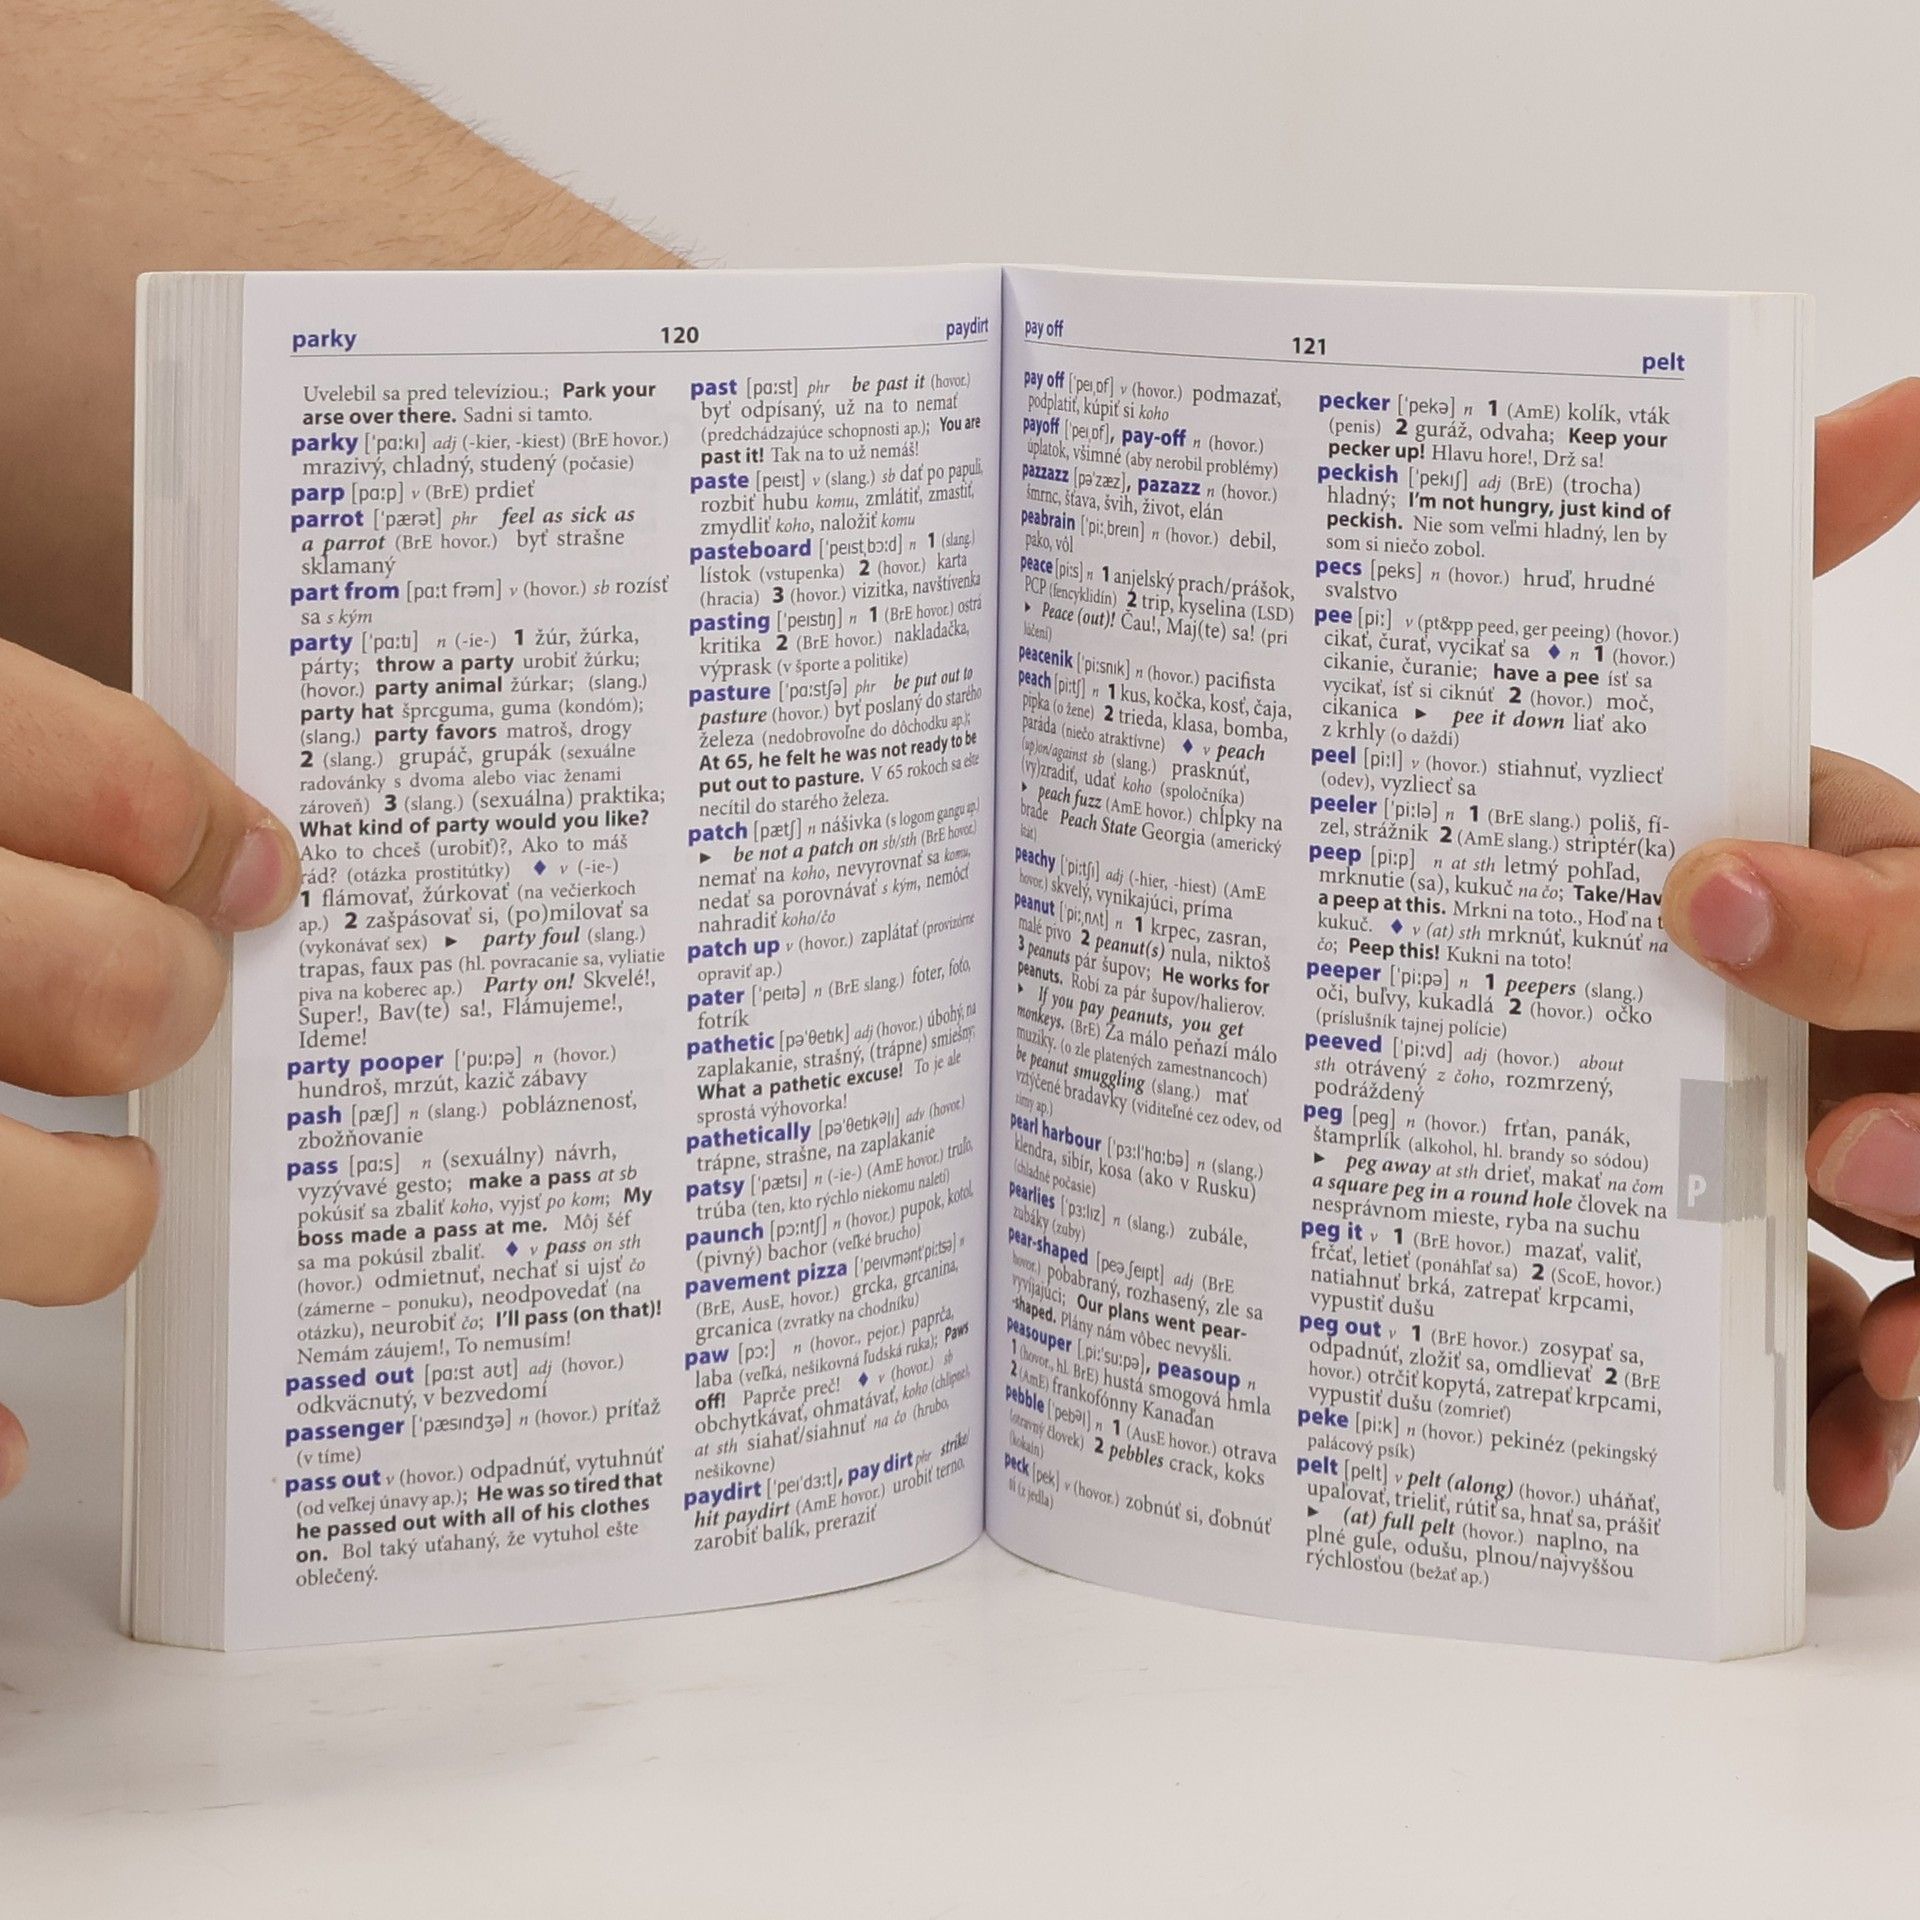 parky 120 paydirt
Uvelebil sa pred televíziou.; Park your
arse over there. Sadni si tamto.
parky [ˈpɑːkɪ] adj (-kier, -kiest) (BrE hovor.)
mrazivý, chladný, studený (počasie)
parp [pɑːp] v (BrE) prdieť
parrot [ˈpærət] phr feel as sick as
a parrot (BrE hovor.) byť strašne
sklamaný
part from [pɑːt frəm] v (hovor.) sb rozísť
sa s kým
party [ˈpɑːtɪ] n (-ie-) 1 žúr, žúrka,
párty; throw a party urobiť žúrku;
(hovor.) party animal žúrkar; (slang.)
party hat šprcguma, guma (kondóm);
(slang.) party favors matroš, drogy
2 (slang.) grupáč, grupák (sexuálne
radovánky s dvoma alebo viac ženami
zároveň) 3 (slang.) (sexuálna) praktika;
What kind of party would you like?
Ako to chceš (urobiť)?, Ako to máš
rád? (otázka prostitútky) ♦ v (-ie-)
1 flámovať, žúrkovať (na večierkoch
ap.) 2 zašpásovať si, (po)milovať sa
(vykonávať sex) ► party foul (slang.)
trapas, faux pas (hl. povracanie sa, vyliatie
piva na koberec ap.) Party on! Skvelé!,
Super!, Bav(te) sa!, Flámujeme!,
Ideme!
party pooper [ˈpuːpə] n (hovor.)
hundroš, mrzút, kazič zábavy
pash [pæʃ] n (slang.) pobláznenosť,
zbožňovanie
pass [pɑːs] n (sexuálny) návrh,
vyzývavé gesto; make a pass at sb
pokúsiť sa zbaliť koho, vyjsť po kom; My
boss made a pass at me. Môj šéf
sa ma pokúsil zbaliť. ♦ v pass on sth
(hovor.) odmietnuť, nechať si ujsť čo
(zámerne – ponuku), neodpovedať (na
otázku), neurobiť čo; I'll pass (on that)!
Nemám záujem!, To nemusím!
passed out [pɑːst aʊt] adj (hovor.)
odkväcnutý, v bezvedomí
passenger [ˈpæsɪndʒə] n (hovor.) príťaž
(v tíme)
pass out v (hovor.) odpadnúť, vytuhnúť
(od veľkej únavy ap.); He was so tired that
he passed out with all of his clothes
on. Bol taký uťahaný, že vytuhol ešte
oblečený.
past [pɑːst] phr be past it (hovor.)
byť odpísaný, už na to nemať
(predchádzajúce schopnosti ap.); You are
past it! Tak na to už nemáš!
paste [peɪst] v (slang.) sb dať po papuli,
rozbiť hubu komu, zmlátiť, zmastiť,
zmydliť koho, naložiť komu
pasteboard [ˈpeɪstˌbɔːd] n 1 (slang.)
lístok (vstupenka) 2 (hovor.) karta
(hracia) 3 (hovor.) vizitka, navštívenka
pasting [ˈpeɪstɪŋ] n 1 (BrE hovor.) ostrá
kritika 2 (BrE hovor.) nakladačka,
výprask (v športe a politike)
pasture [ˈpɑːstʃə] phr be put out to
pasture (hovor.) byť poslaný do starého
železa (nedobrovoľne do dôchodku ap.);
At 65, he felt he was not ready to be
put out to pasture. V 65 rokoch sa ešte
necítil do starého železa.
patch [pætʃ] n nášivka (s logom gangu ap.)
► be not a patch on sb/sth (BrE hovor.)
nemať na koho, nevyrovnať sa komu,
nedať sa porovnávať s kým, nemôcť
nahradiť koho/čo
patch up v (hovor.) zaplátať (provizórne
opraviť ap.)
pater [ˈpeɪtə] n (BrE slang.) foter, foťo,
fotrík
pathetic [pəˈθetɪk] adj (hovor.) úbohý, na
zaplakanie, strašný, (trápne) smiešny;
What a pathetic excuse! To je ale
sprostá výhovorka!
pathetically [pəˈθetɪkəlɪ] adv (hovor.)
trápne, strašne, na zaplakanie
patsy [ˈpætsɪ] n (-ie-) (AmE hovor.) truľo,
trúba (ten, kto rýchlo niekomu naletí)
paunch [pɔːntʃ] n (hovor.) pupok, kotol,
(pivný) bachor (veľké brucho)
pavement pizza [ˈpeɪvməntˈpiːtsə] n
(BrE, AusE, hovor.) grcka, grcanina,
grcanica (zvratky na chodníku)
paw [pɔː] n (hovor., pejor.) paprča,
laba (veľká, nešikovná ľudská ruka); Paws
off! Paprče preč! ♦ v (hovor.) sb
obchytkávať, ohmatávať, koho (chlipne),
at sth siahať/siahnuť na čo (hrubo,
nešikovne)
paydirt [ˈpeɪˈdɜːt], pay dirt phr strike/
hit paydirt (AmE hovor.) urobiť terno,
zarobiť balík, preraziť
pay off 121 pelt
pay off [ˈpeɪˌɒf] v (hovor.) podmazať,
podplatiť, kúpiť si koho
payoff [ˈpeɪˌɒf], pay-off n (hovor.)
úplatok, všimné (aby nerobil problémy)
pazzazz [pəˈzæz], pazazz n (hovor.)
šmrnc, šťava, švih, život, elán
peabrain [ˈpiːˌbreɪn] n (hovor.) debil,
pako, vôl
peace [piːs] n 1 anjelský prach/prášok,
PCP (fencyklidín) 2 trip, kyselina (LSD)
► Peace (out)! Čau!, Maj(te) sa! (pri
lúčení)
peacenik [ˈpiːsnɪk] n (hovor.) pacifista
peach [piːtʃ] n 1 kus, kočka, kosť, čaja,
pipka (o žene) 2 trieda, klasa, bomba,
paráda (niečo atraktívne) ♦ v peach
(up)on/against sb (slang.) prasknúť,
(vy)zradiť, udať koho (spoločníka)
► peach fuzz (AmE hovor.) chĺpky na
brade Peach State Georgia (americký
štát)
peachy [ˈpiːtʃɪ] adj (-hier, -hiest) (AmE
hovor.) skvelý, vynikajúci, príma
peanut [ˈpiːˌnʌt] n 1 krpec, zasran,
malé pivo 2 peanut(s) nula, niktoš
3 peanuts pár šupov; He works for
peanuts. Robí za pár šupov/halierov.
► If you pay peanuts, you get
monkeys. (BrE) Za málo peňazí málo
muziky. (o zle platených zamestnancoch)
be peanut smuggling (slang.) mať
vztýčené bradavky (viditeľné cez odev, od
zimy ap.)
pearl harbour [ˈpɜːlˈhɑːbə] n (slang.)
klendra, sibír, kosa (ako v Rusku)
(chladné počasie)
pearlies [ˈpɜːlɪz] n (slang.) zubále,
zubáky (zuby)
pear-shaped [peəˌʃeɪpt] adj (BrE
hovor.) pobabraný, rozhasený, zle sa
vyvíjajúci; Our plans went pear-
-shaped. Plány nám vôbec nevyšli.
peasouper [ˌpiːˈsuːpə], peasoup n
1 (hovor., hl. BrE) hustá smogová hmla
2 (AmE) frankofónny Kanaďan
pebble [ˈpebəl] n 1 (AusE hovor.) otrava
(otravný človek) 2 pebbles crack, koks
(kokaín)
peck [pek] v (hovor.) zobnúť si, ďobnúť
si (z jedla)
pecker [ˈpekə] n 1 (AmE) kolík, vták
(penis) 2 guráž, odvaha; Keep your
pecker up! Hlavu hore!, Drž sa!
peckish [ˈpekɪʃ] adj (BrE) (trocha)
hladný; I'm not hungry, just kind of
peckish. Nie som veľmi hladný, len by
som si niečo zobol.
pecs [peks] n (hovor.) hruď, hrudné
svalstvo
pee [piː] v (pt&pp peed, ger peeing) (hovor.)
cikať, čurať, vycikať sa ♦ n 1 (hovor.)
cikanie, čuranie; have a pee ísť sa
vycikať, ísť si ciknúť 2 (hovor.) moč,
cikanica ► pee it down liať ako
z krhly (o daždi)
peel [piːl] v (hovor.) stiahnuť, vyzliecť
(odev), vyzliecť sa
peeler [ˈpiːlə] n 1 (BrE slang.) poliš, fí-
zel, strážnik 2 (AmE slang.) striptér(ka)
peep [piːp] n at sth letmý pohľad,
mrknutie (sa), kukuč na čo; Take/Hav
a peep at this. Mrkni na toto., Hoď na t
kukuč. ♦ v (at) sth mrknúť, kuknúť na
čo; Peep this! Kukni na toto!
peeper [ˈpiːpə] n 1 peepers (slang.)
oči, buľvy, kukadlá 2 (hovor.) očko
(príslušník tajnej polície)
peeved [ˈpiːvd] adj (hovor.) about
sth otrávený z čoho, rozmrzený,
podráždený
peg [peg] n (hovor.) frťan, panák,
štamprlík (alkohol, hl. brandy so sódou)
► peg away at sth drieť, makať na čom
a square peg in a round hole človek na
nesprávnom mieste, ryba na suchu
peg it v 1 (BrE hovor.) mazať, valiť,
frčať, letieť (ponáhľať sa) 2 (ScoE, hovor.)
natiahnuť brká, zatrepať krpcami,
vypustiť dušu
peg out v 1 (BrE hovor.) zosypať sa,
odpadnúť, zložiť sa, omdlievať 2 (BrE
hovor.) otrčiť kopytá, zatrepať krpcami,
vypustiť dušu (zomrieť)
peke [piːk] n (hovor.) pekinéz (pekingský
palácový psík)
pelt [pelt] v pelt (along) (hovor.) uháňať,
upaľovať, trieliť, rútiť sa, hnať sa, prášiť
► (at) full pelt (hovor.) naplno, na
plné gule, odušu, plnou/najvyššou
rýchlosťou (bežať ap.)
P